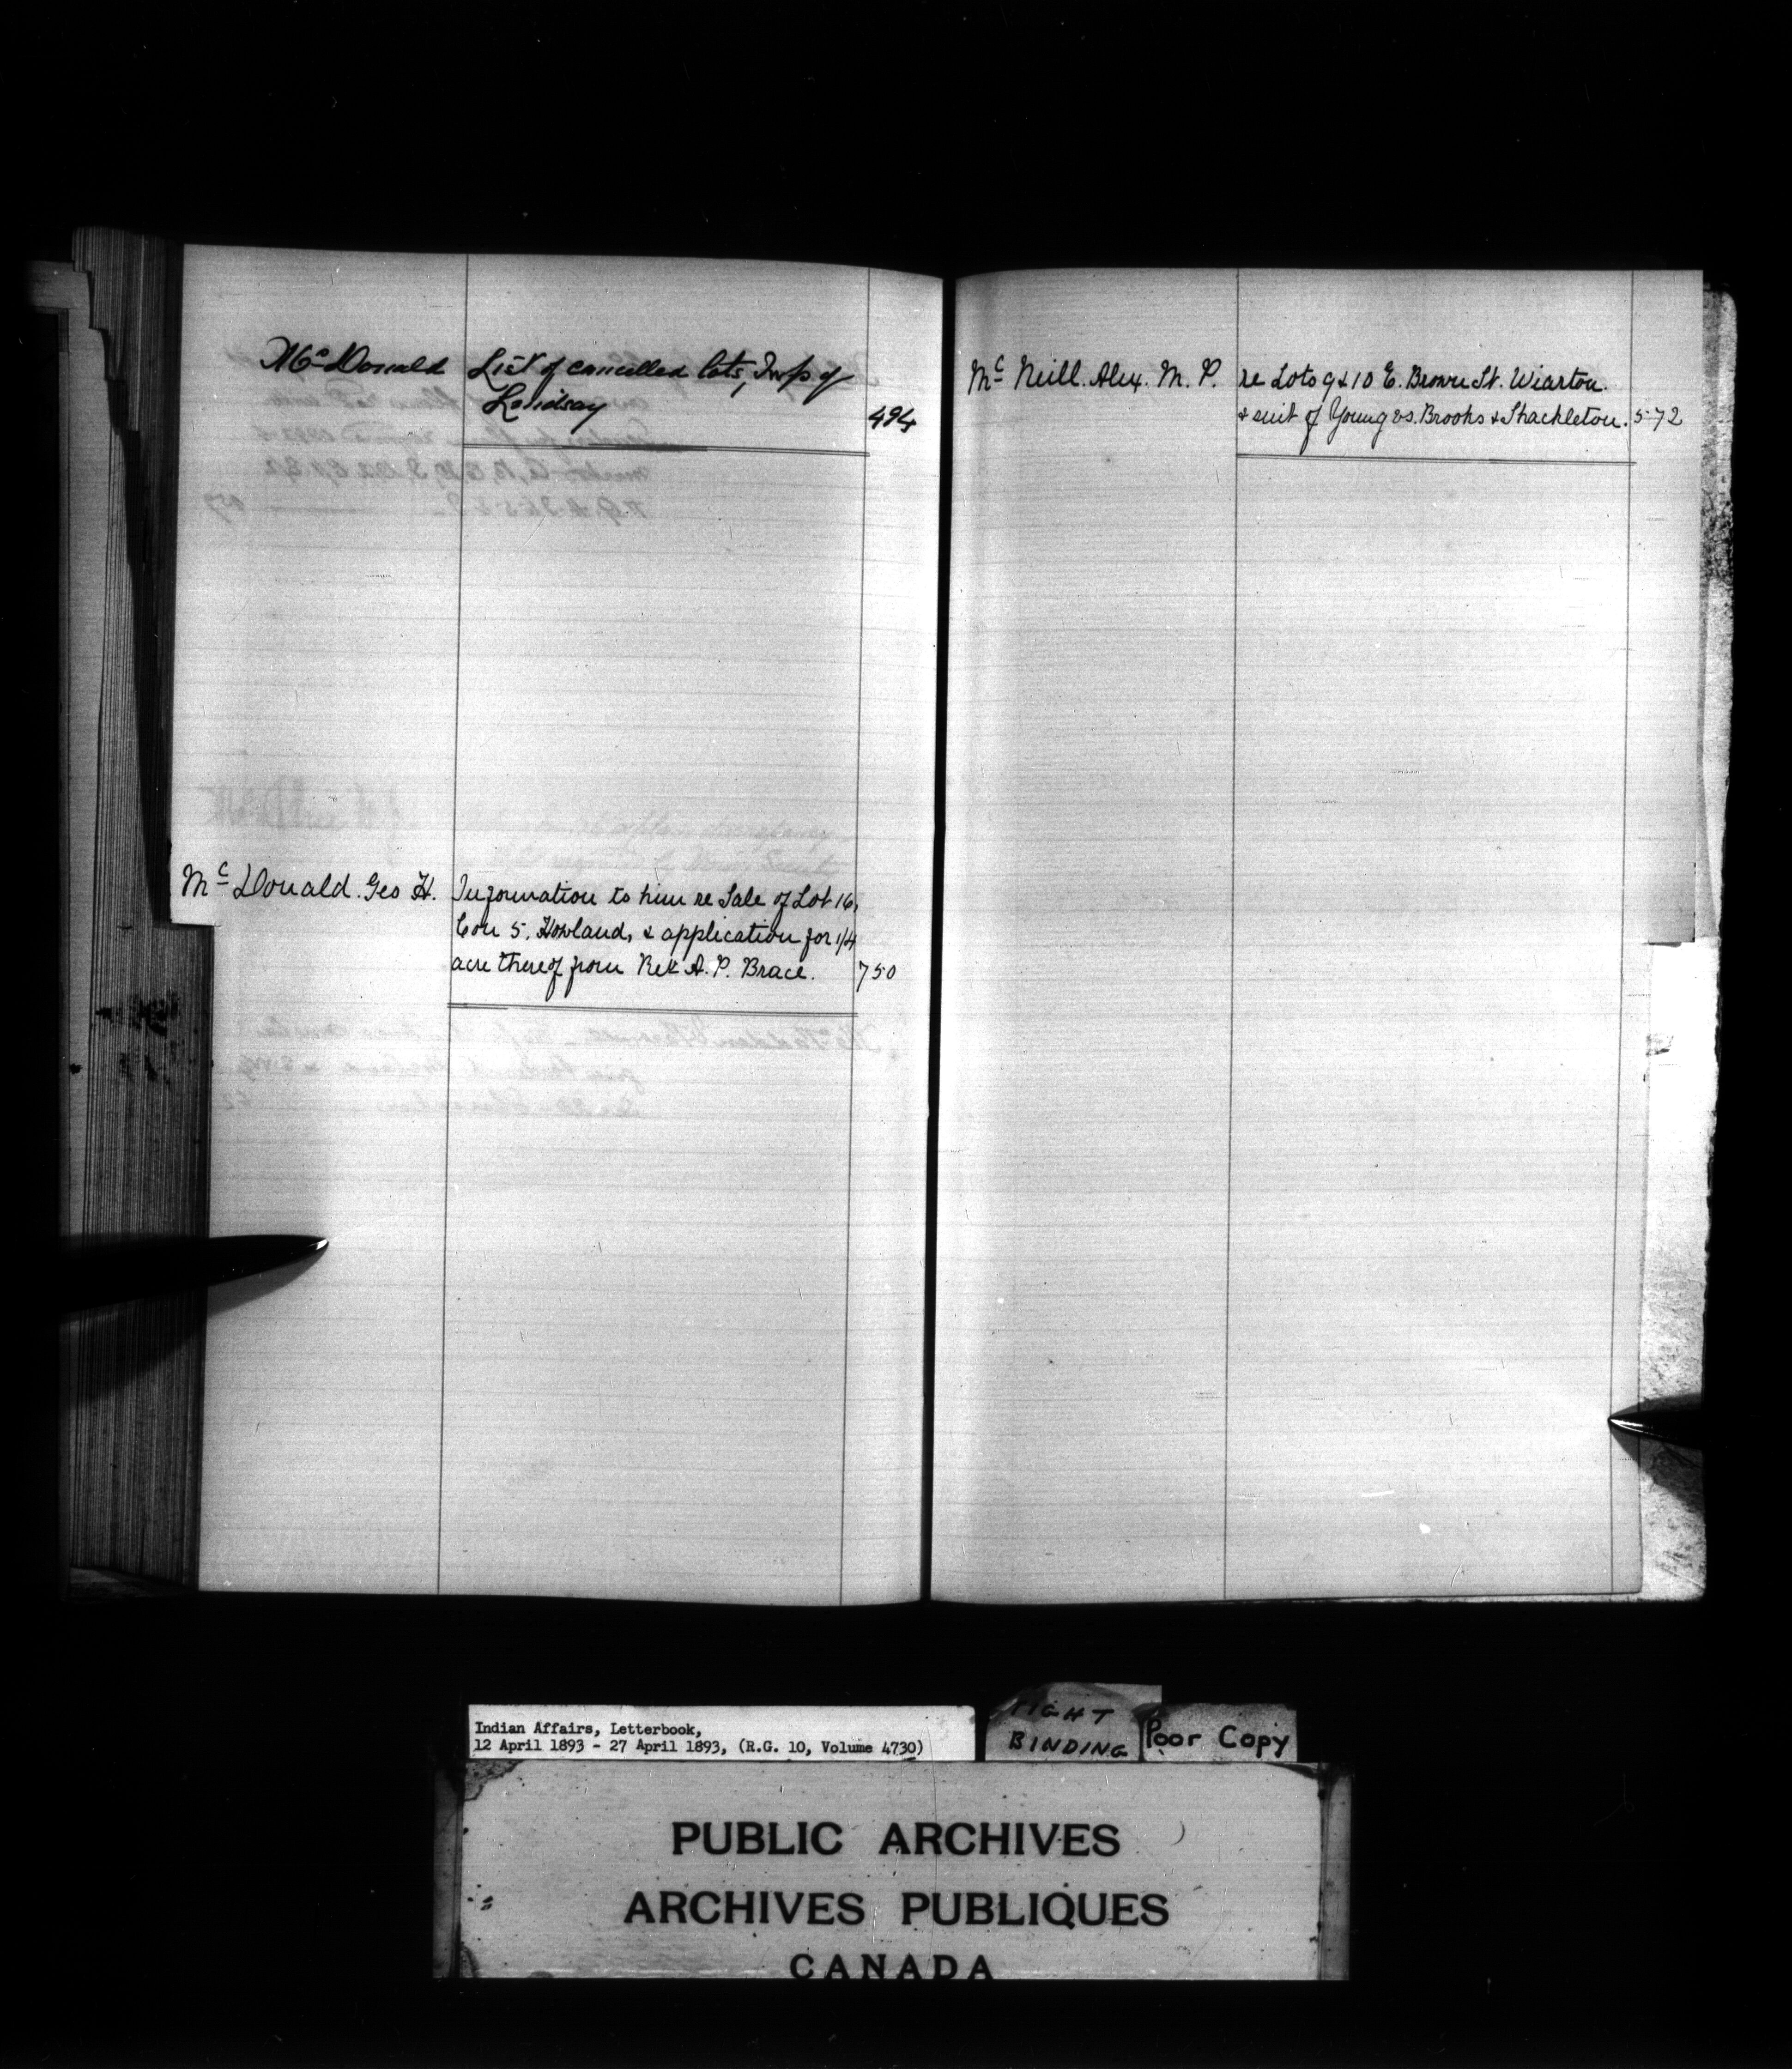 McDonald List of cancelled lots, Twsp of
Lindsay 494
McDonald. Geo H. Information to him re Sale of Lot 16,
Con 5, Howland, & application for 1/4
acre thereof from Rev. A. P. Brace. 750
McNeill. Alex. M. P. re Lots 9 & 10 E. Brown St. Wiarton.
& suit of Young vs. Brooks & Shackleton. 572
Indian Affairs, Letterbook,
12 April 1893 - 27 April 1893, (R.G. 10, Volume 4730)
TIGHT
BINDING
Poor Copy
PUBLIC ARCHIVES
ARCHIVES PUBLIQUES
CANADA